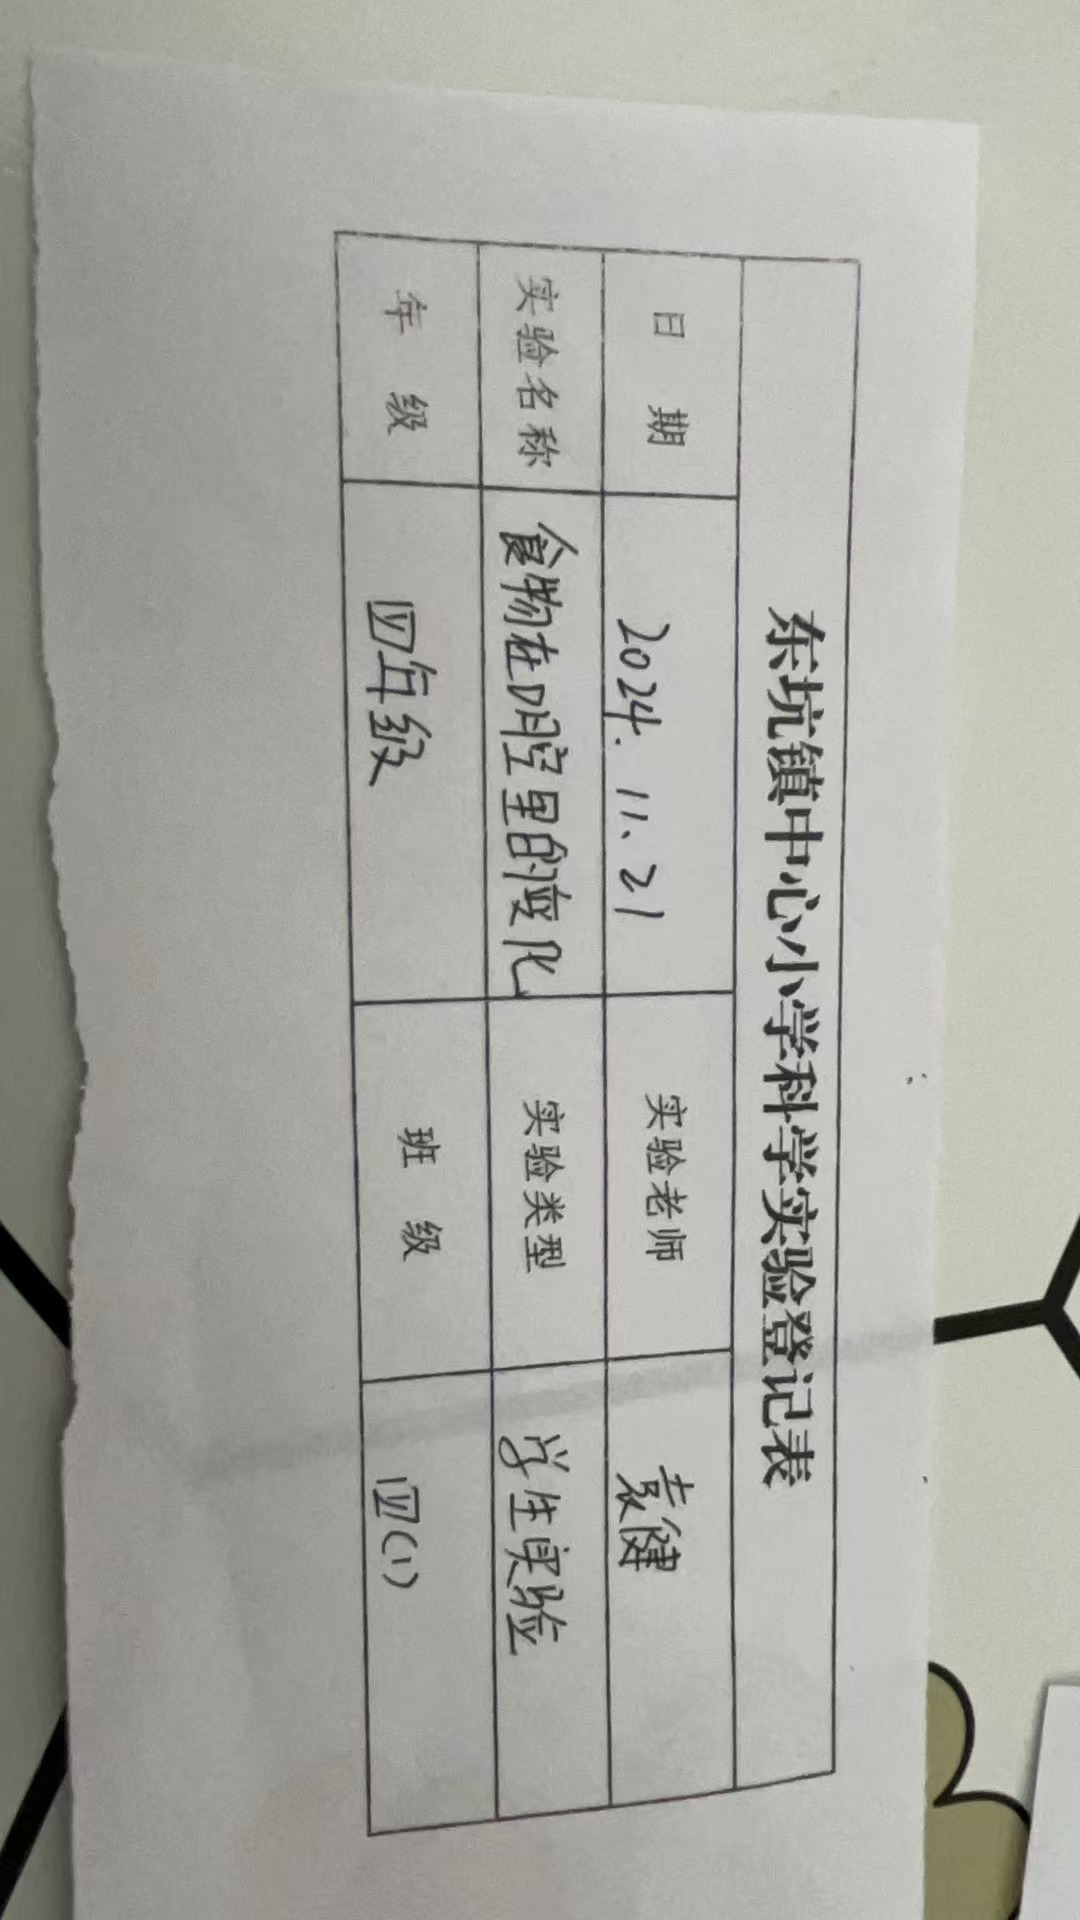 东坑镇中心小学科学实验登记表
日 期 2024.11.21 实验老师 袁健
实验名称 食物在口腔里的变化 实验类型 学生实验
年 级 四年级 班 级 四(1)